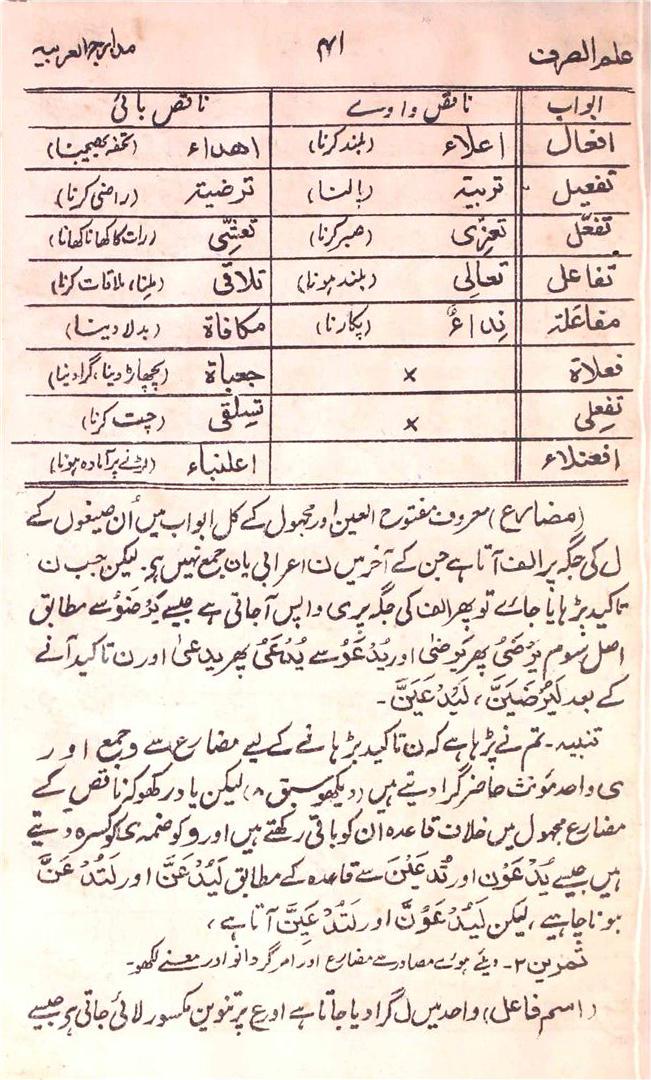 علم الصرف ۴۱ مدارج العربیہ
ابواب ناقص واوے ناقص یائی
افعال اعلاء (بلند کرنا) اھداء (تحفہ بھیجنا)
تفعیل تربیۃ (پالنا) ترضیۃ (راضی کرنا)
تفعّل تعزّی (صبر کرنا) تعشّی (رات کا کھانا کھانا)
تفاعل تعالی (بلند ہونا) تلاقی (ملنا، ملاقات کرنا)
مفاعلۃ نِداءٌ (پکارنا) مکافاۃ (بدلا دینا)
فعلاۃ × جعباۃ (پچھاڑ دینا، گرا دینا)
تفعلی × تسلقی (چت کرنا)
افعنلاء اعلنباء (لڑنے پر آمادہ ہونا)
(مضارع) معروف مفتوح العین اور مجہول کے کل ابواب میں اُن صیغوں کے
ل کی جگہ پر الف آتا ہے جن کے آخر میں ن اعرابی یا ن جمع نہیں ہے۔ لیکن جب ن
تاکید بڑہایا جائے تو پھر الف کی جگہ پر ی واپس آ جاتی ہے جیسے یَرْضَوُ سے مطابق
اصل سوم یَرْضَیُ پھر یَرْضیٰ اور یُدْعَوُ سے یُدْعَیُ پھر یدعیٰ اور ن تاکید آنے
کے بعد لَیَرْضَیَنَّ، لَیُدْعَیَنَّ۔
تنبیہ۔ تم نے پڑہا ہے کہ ن تاکید بڑہانے کے لیے مضارع سے و جمع اور
ی واحد مؤنث حاضر گرا دیتے ہیں (دیکھو سبق ۸) لیکن یاد رکھو کہ ناقص کے
مضارع مجہول میں خلاف قاعدہ ان کو باقی رکھتے ہیں اور و کو ضمہ ی کو کسرہ دیتے
ہیں جیسے یُدْعَوْن اور تُدعَیْنَ سے قاعدہ کے مطابق لَیُدْعَنَّ اور لَتُدْعَنَّ
ہونا چاہیے، لیکن لَیُدْعَوُنَّ اور لَتُدْعَیِنَّ آتا ہے،
تمرین ۲۔ دیئے ہوے مصادر سے مضارع اور امر گردانو اور معنے لکھو۔
(اسم فاعل) واحد میں ل گرا دیا جاتا ہے اور ع پر تنوین مکسور لائی جاتی ہے جیسے